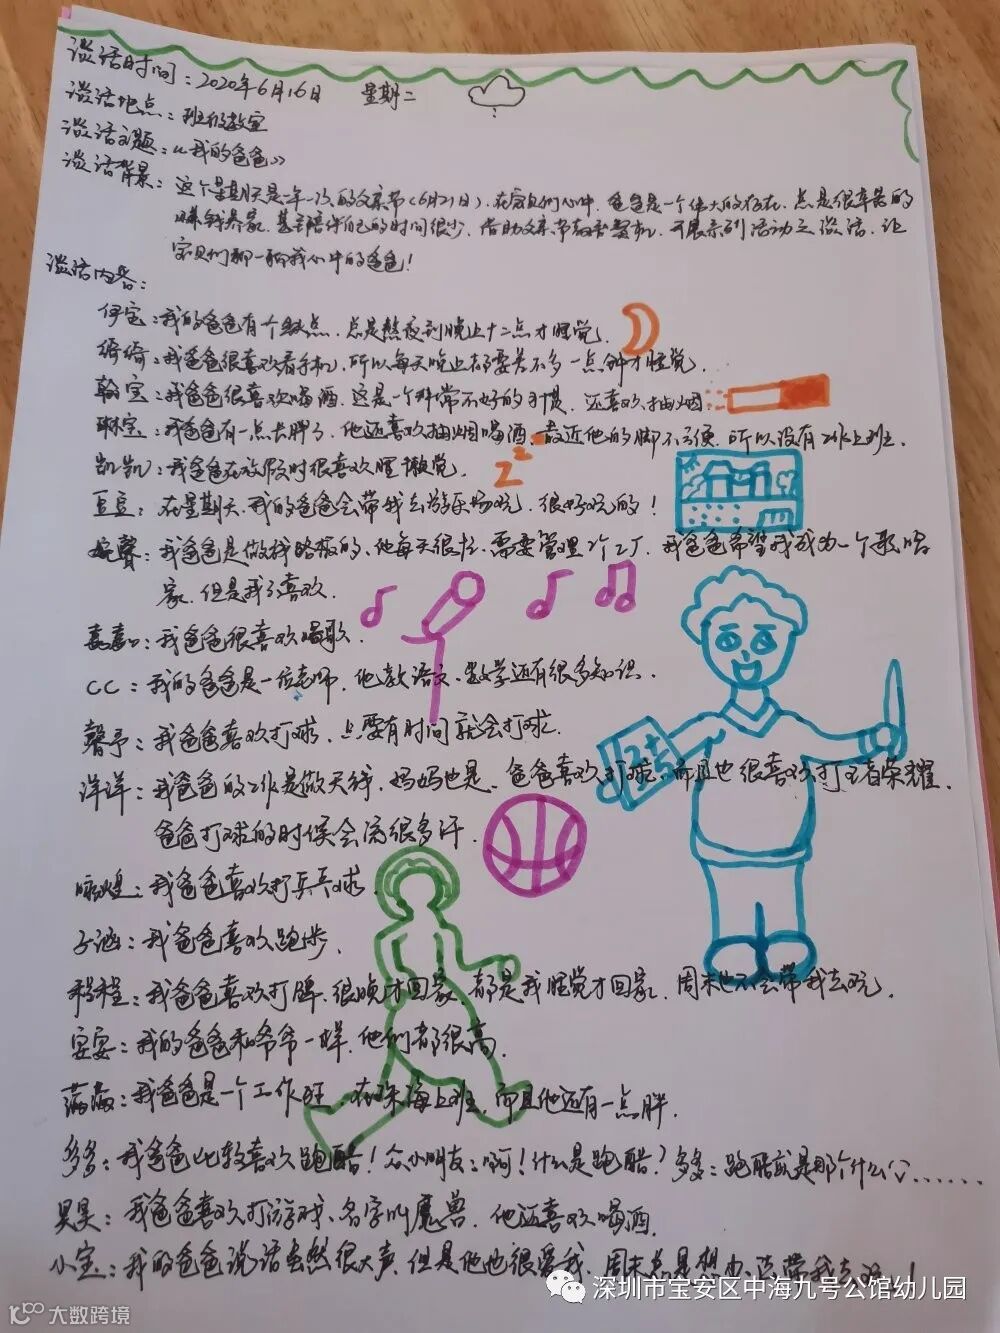 谈话时间：2020年6月16日 星期二
谈话地点：班级教室
谈话主题：《我的爸爸》
谈话背景：这个星期天是一年一次的父亲节（6月21日），在宝贝们心中，爸爸是一个伟大的存在，总是很辛苦的
赚钱养家，甚至陪伴自己的时间很少，借助父亲节契机，开展系列活动之谈话，让
宝贝们聊一聊我心中的爸爸！
谈话内容：
伊宝：我的爸爸有个缺点，总是熬夜到晚上十二点才睡觉。
绮绮：我爸爸很喜欢看手机，所以每天晚上都要差不多一点钟才睡觉。
翰宝：我爸爸很喜欢喝酒，这是一个非常不好的习惯，还喜欢抽烟
琳宝：我爸爸有一点长胖了，他还喜欢抽烟喝酒，最近他的脚不方便，所以没有工作上班。
凯凯：我爸爸在放假时很喜欢睡懒觉。
豆豆：在星期天，我的爸爸会带我去游乐场玩，很好玩的！
馨：我爸爸是做线路板的，他每天很忙，需要管理2个工厂，我爸爸希望我成为一个歌唱
家，但是我不喜欢。
嘉嘉：我爸爸很喜欢唱歌。
CC：我的爸爸是一位老师，他教语文、数学还有很多知识。
馨予：我爸爸喜欢打球，只要有时间就会打球。
洋洋：我爸爸的工作是做天线，妈妈也是。爸爸喜欢打球，而且也很喜欢打王者荣耀。
爸爸打球的时候会流很多汗。
煌：我爸爸喜欢打乒乓球。
子涵：我爸爸喜欢跑步。
程程：我爸爸喜欢打牌，很晚才回家，都是我睡觉才回家，周末也不会带我去玩。
宴宴：我的爸爸和爷爷一样，他们都很高。
我爸爸是一个工作狂，在珠海上班，而且他还有一点胖。
多多：我爸爸比较喜欢跑酷！众小朋友：啊！什么是跑酷？多多：跑酷就是那个什么……
昊昊：我爸爸喜欢打游戏，名字叫魔兽，他还喜欢喝酒。
小宝：我的爸爸说话虽然很大声，但是他也很爱我，周末总是想办法带我去玩！
深圳市宝安区中海九号公馆幼儿园
大数跨境